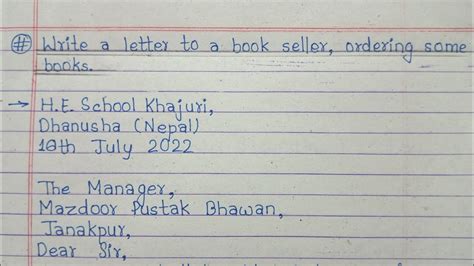 # Write a letter to a book seller, ordering some
books.
→ H.E. School Khajuri,
Dhanusha (Nepal)
10th July 2022
The Manager,
Mazdoor Pustak Bhawan,
Janakpur,
Dear Sir,